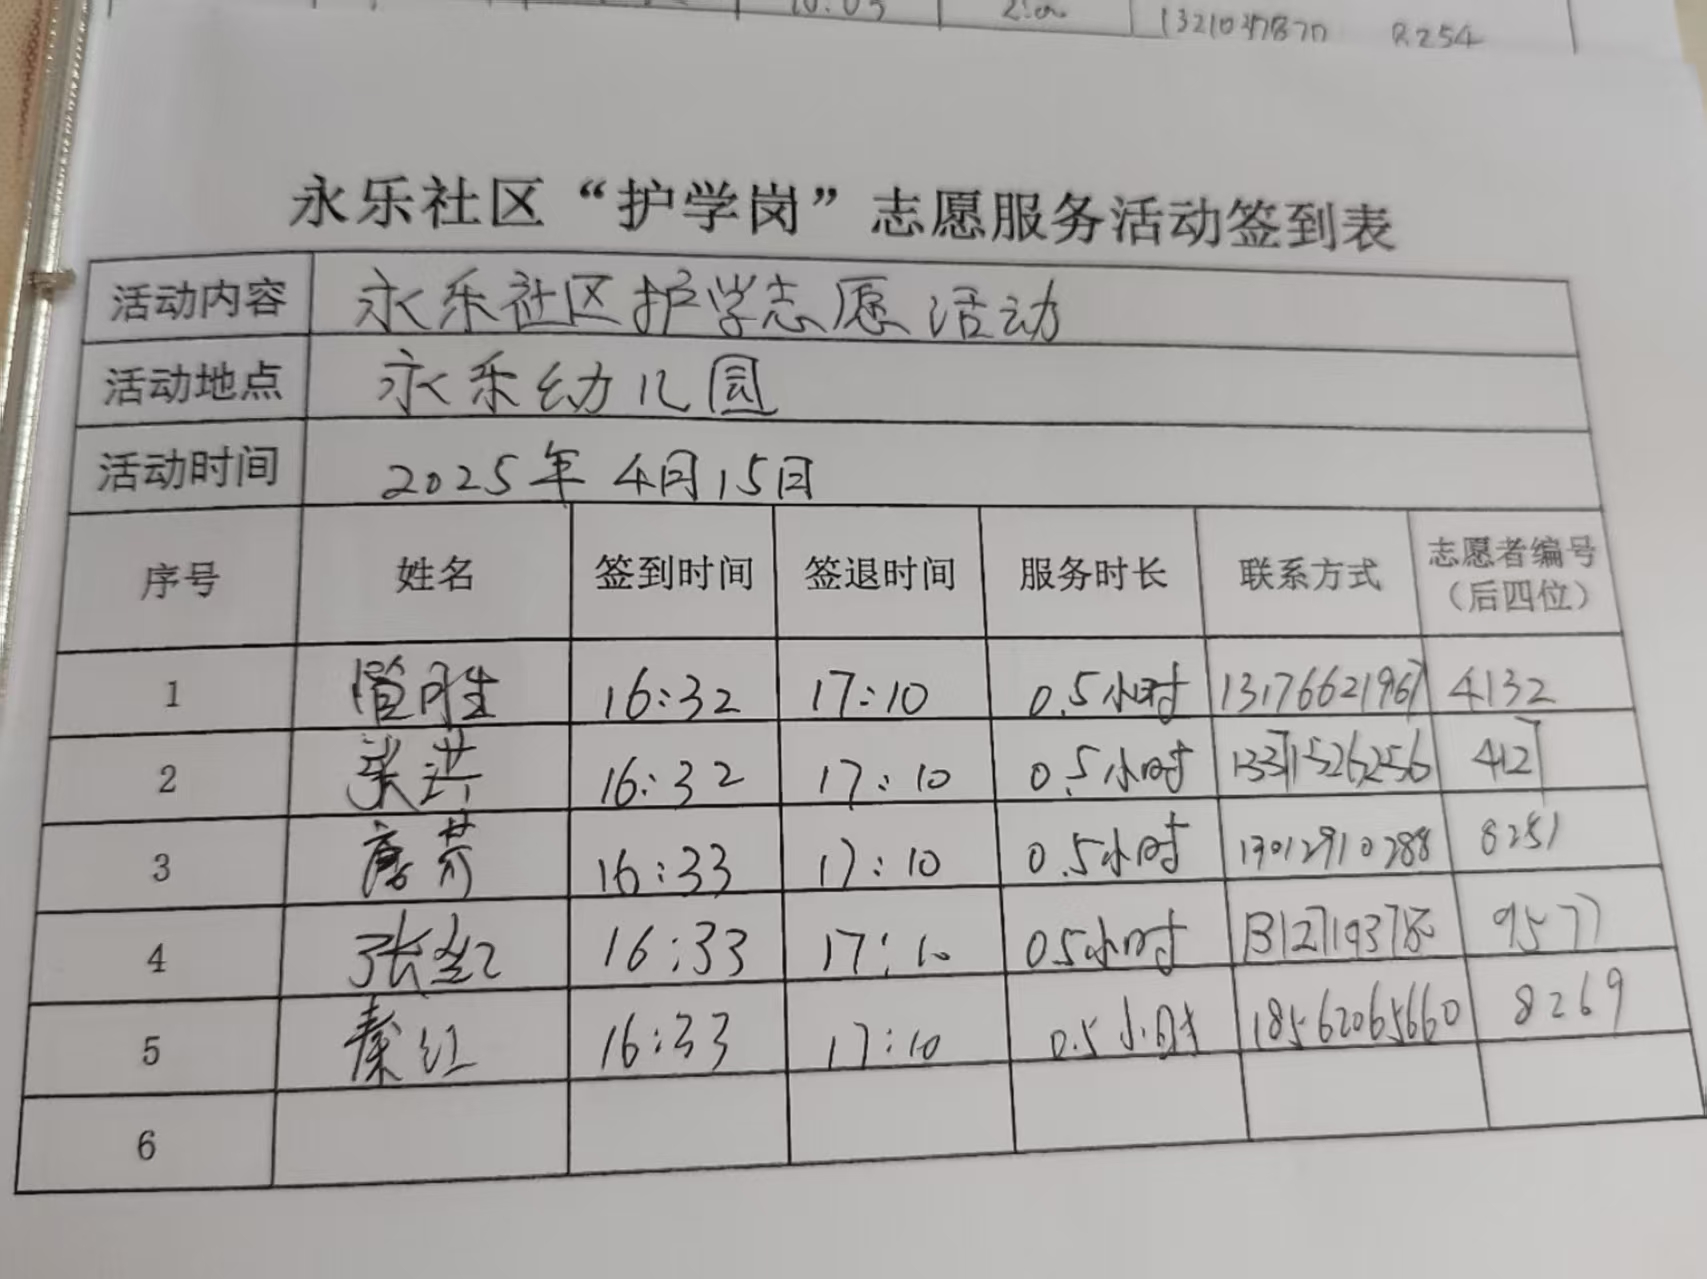 2:00 1321047870 R254
永乐社区“护学岗”志愿服务活动签到表
活动内容 永乐社区护学志愿活动
活动地点 永乐幼儿园
活动时间 2025年4月15日
序号 姓名 签到时间 签退时间 服务时长 联系方式 志愿者编号（后四位）
1 16:32 17:10 0.5小时 13176621967 4132
2 张洪 16:32 17:10 0.5小时 13371526256 4127
3 唐芳 16:33 17:10 0.5小时 13012910288 8251
4 张红 16:33 17:10 0.5小时 9577
5 秦红 16:33 17:10 0.5小时 18562065660 8269
6